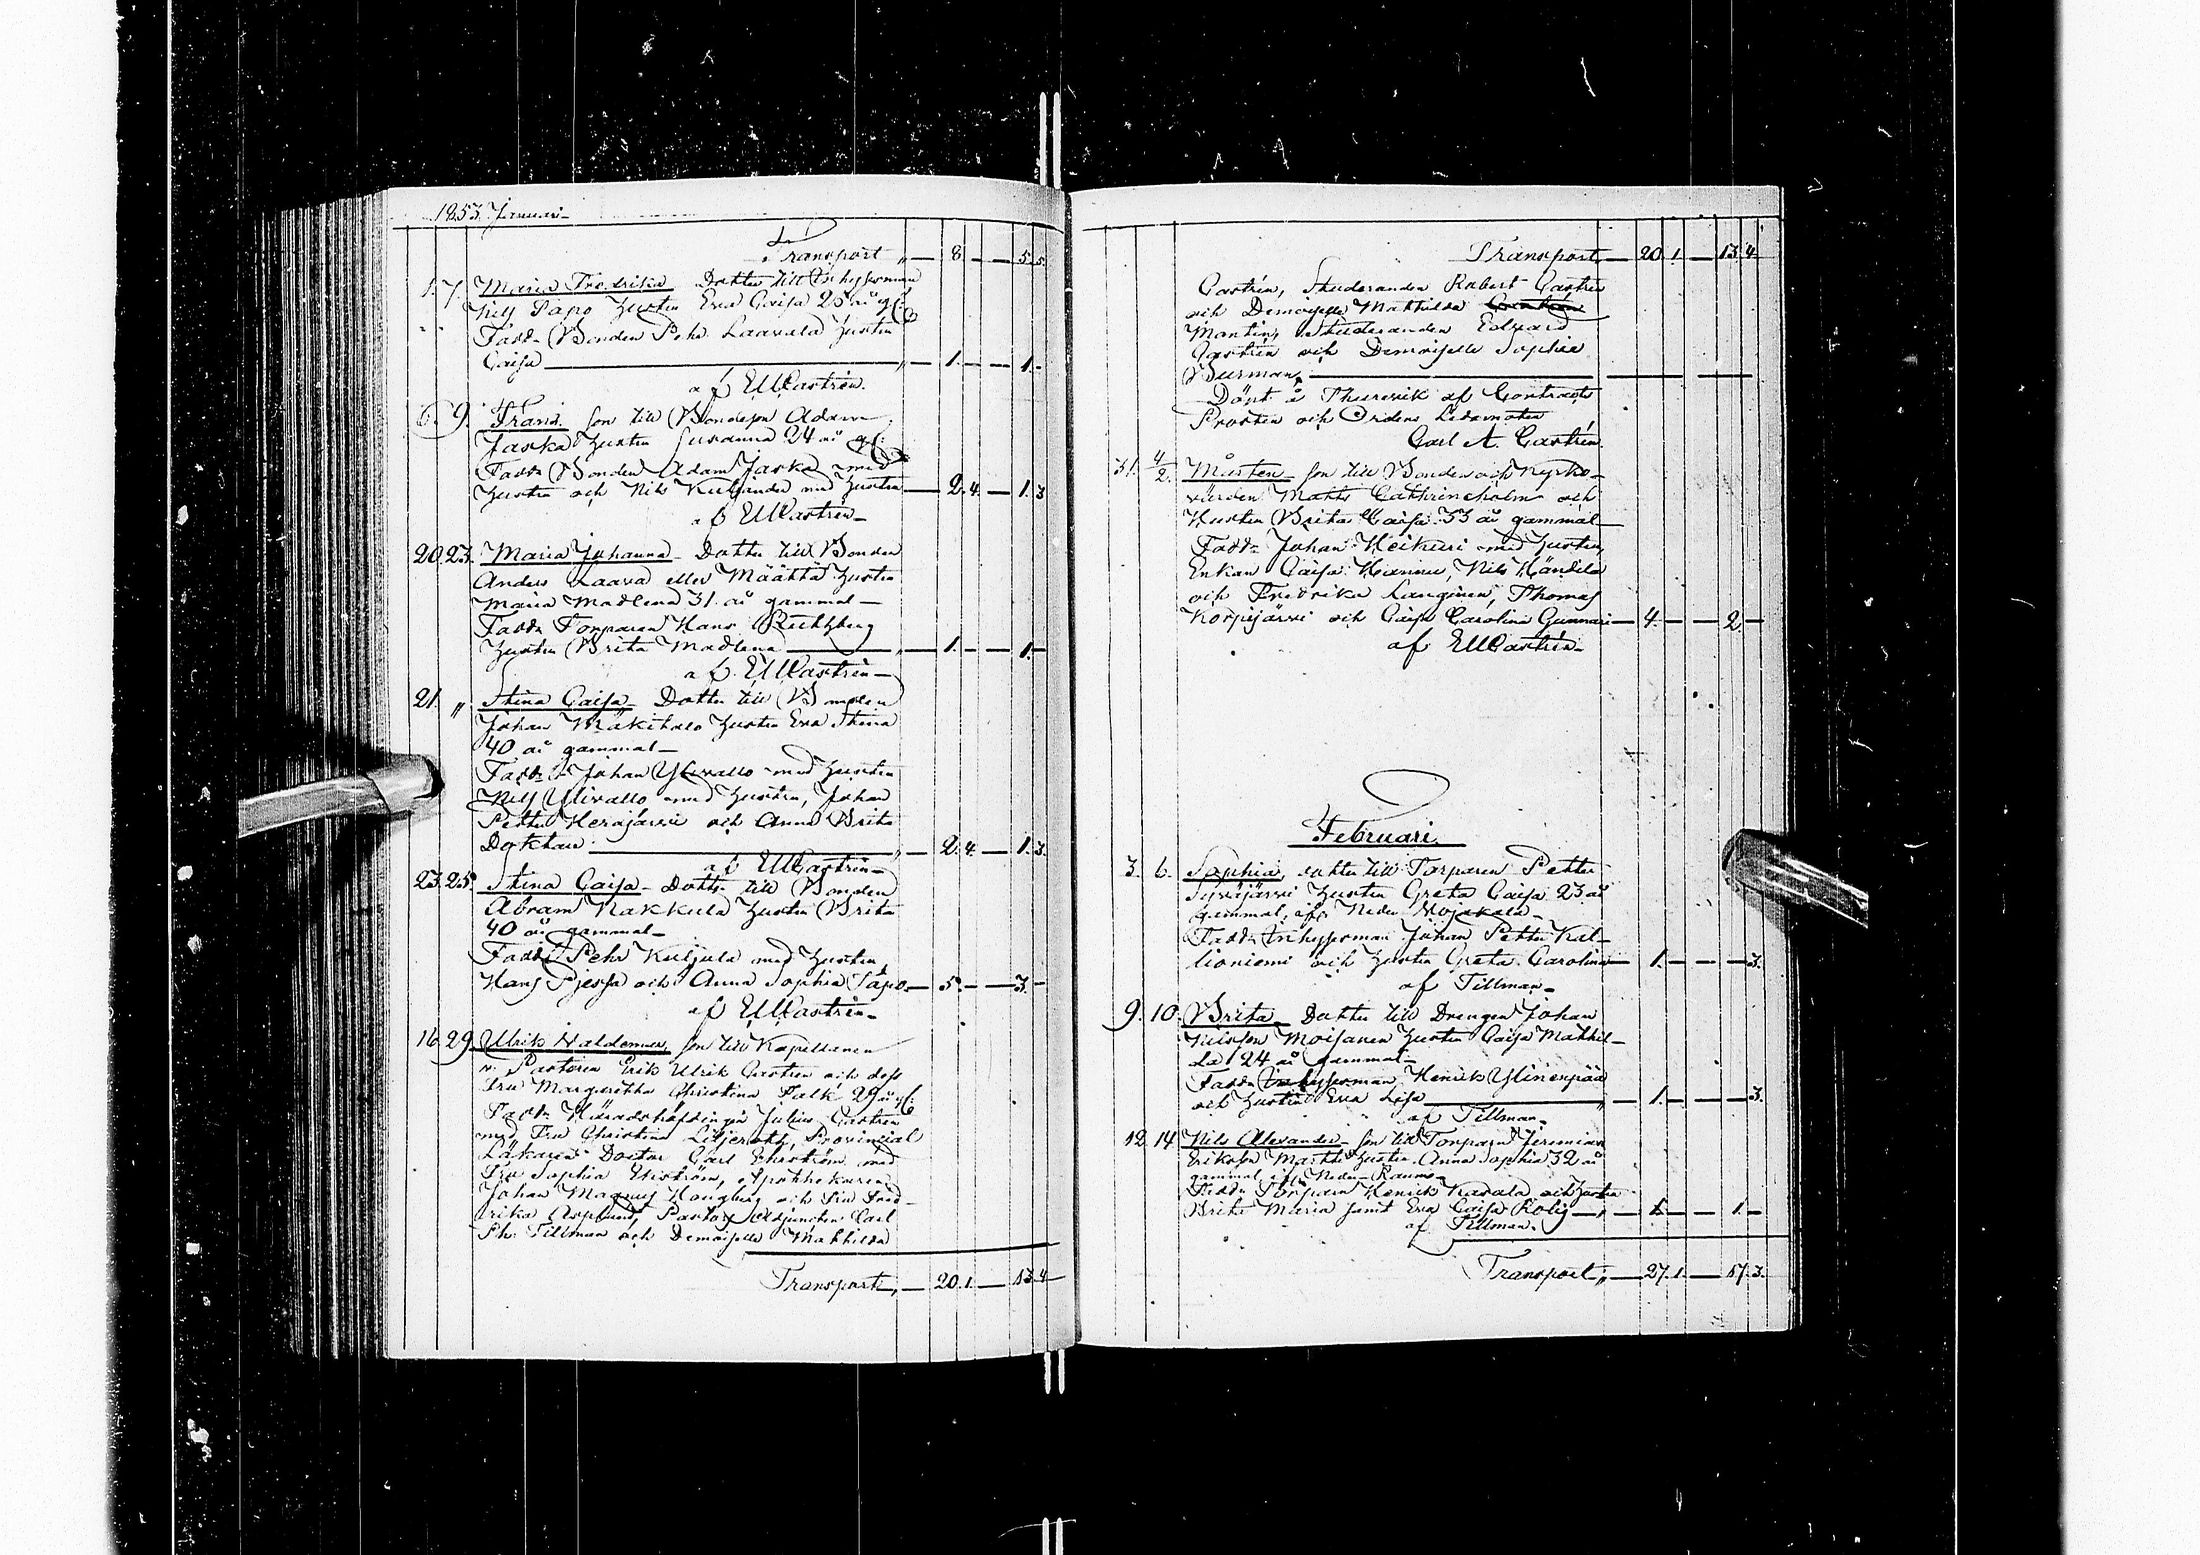 1853. Januari
Transport „ — 8 — — 5. 5.
1. 7. Maria Fredrika Dotter till Inhysesman
Nils Papo hustru Eva Caisa 25 år gl:
Fadd: Bonden Pehr Laavala hustru
Caisa — „ — 1. — — 1. —
af EUCastrén.
6. 9. Frans. son till Bondeson Adam
Jaska hustru Susanna 24 år gl:
Fadd: Bonden Adam Jaska med
hustru och Nils Kuljander med hustru — 2. 4. — 1. 3
af EUCastrén
20. 23. Maria Johanna Dotter till Bonden
Anders Laava eller Määttä hustru
Maria Madlena 31. år gammal
Fadd: Torparen Hans
hustru Brita Madlena — „ — 1. — — 1. —
af EUCastrén
21. „ Stina Caisa Dotter till Bonden
Johan Mäkitalo hustru Eva Stina
40 år gammal
Fadd: Johan Ylivallo med hustru
Nils Ylivallo med hustru, Johan
Petter Herajärvi och Anna Brita
— „ — 2. 4. — 1. 3.
af EUCastrén
23. 25. Stina Caisa Dotter till Bonden
Abram Nakkula hustru Brita
40 år gammal
Fadd: Pehr Kuljula med hustru
Hans Pjessa och Anna Sophia Papo — 5. — — 3. —
af EUCastrén
16. 29. Ulrik Waldemar, son till Kapellanen
v. Pastoren Erik Ulrik Castrén och dess
Fru Margaretha Christina Falk 29 år gl:
Fadd: Häradshöfdingen Julius Castrén
med Fru Christina Liljeroth, Provincial
Läkaren Doctor Carl Ehrström med
Fru Sophia Ehrström, Apothekaren
Johan Magnus Hougberg och Fru Fred-
rika Asplund, Pastors Adjuncten Carl
Ph: Tillman och Demoiselle Mathilda
Transport, — 20. 1. — 13. 4
Transport — 20. 1. — 13. 4.
Castrén, Studeranden Robert Castrén
och Demoiselle Mathilda Castrén
Mantin, Studeranden Edvard
Castrén och Demoiselle Sophia
Burman,
Döpt å Thurevik af Contracts
Prosten och Ordens Ledamoten
Carl A. Castrén
31. 4/2. Mårten son till Bonden och Kyrko-
värden Matts Cathrineholm och
Hustru Brita Caisa 33 år gammal
Fadd: Johan Heikuri med hustru,
Enkan Caisa Hannu, Nils Händela
och Fredrika Langinen, Thomas
Korpijärvi och Caisa Carolina Gunnari — 4. — — 2. —
af EUCastrén
Februari
3. 6. Sophia, dotter till Torparen Petter
Syväjärvi hustru Greta Caisa 23 år
gammal, ifr: Neder
Fadd: Inhysesman Johan Petter Kal-
lioniemi och hustru Greta Carolina — 1. — — — 3.
af Tillman
9. 10. Brita Dotter till Drengen Johan
Nilsson Moisanen hustru Caisa Mathil-
da 24 år gammal
Fadd: Inhysesman Henrik Ylinenpää
och hustru Eva Lisa — „ — 1. — — — 3.
af Tillman
12. 14. Nils Alexander son till Torparen Jeremias
Eriksson Martti hustru Anna Sophia 32 år
gammal ifr: Neder-Raumo
Fadd: Torparen Henrik Kadala och hustru
Brita Maria samt Eva Caisa Rolig — „ — 1. — — 1. —
af Tillman.
Transport „ — 27. 1. — 17. 3.